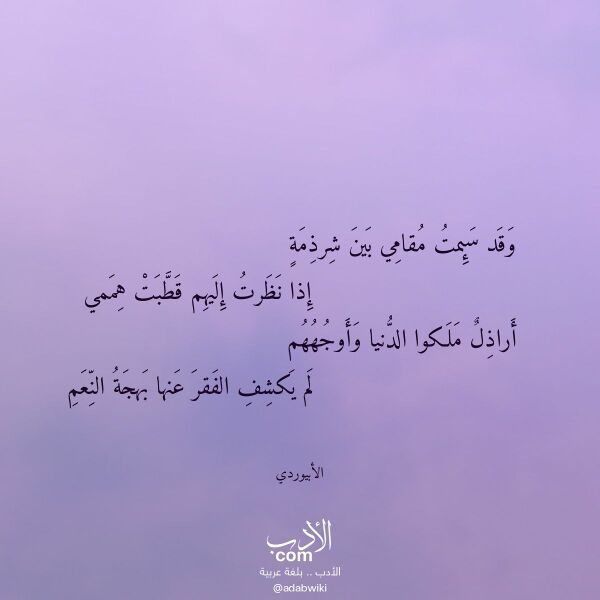 وَقَد سَئِمتُ مُقامِي بَينَ شِرذِمَةٍ
إِذا نَظَرتُ إِلَيهِم قَطَّبَتْ هِمَمي
أَراذِلٌ مَلَكوا الدُّنيا وَأَوجُهُهُم
لَم يَكشِفِ الفَقرَ عَنها بَهجَةُ النِّعَمِ
الأبيوردي
الأدب
.com
الأدب .. بلغة عربية
@adabwiki